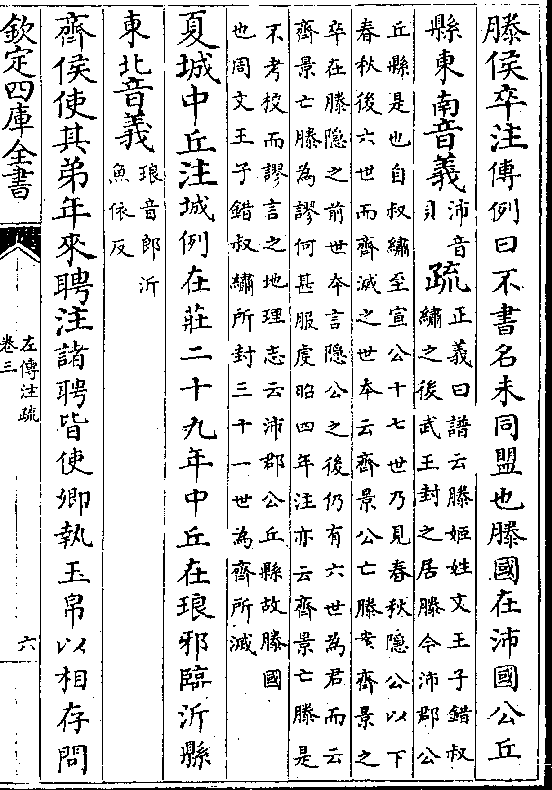 滕侯卒注傳例曰不書名未同盟也滕國在沛國公丘
縣東南音義沛音貝疏正義曰譜云滕姬姓文王子錯叔繡之後武王封之居滕今沛郡公
丘縣是也自叔繡至宣公十七世乃見春秋隱公以下
春秋後六世而齊滅之世本云齊景公亡滕案齊景之
卒在滕隱之前世本言隱公之後仍有六世為君而云
齊景亡滕為謬何甚服虔昭四年注亦云齊景亡滕是
不考校而謬言之地理志云沛郡公丘縣故滕國
也周文王子錯叔繡所封三十一世為齊所滅
夏城中丘注城例在莊二十九年中丘在琅邪臨沂縣
東北音義琅音郎沂魚依反
齊侯使其弟年來聘注諸聘皆使卿執玉帛以相存問
欽定四庫全書
左傳注疏
卷三
六